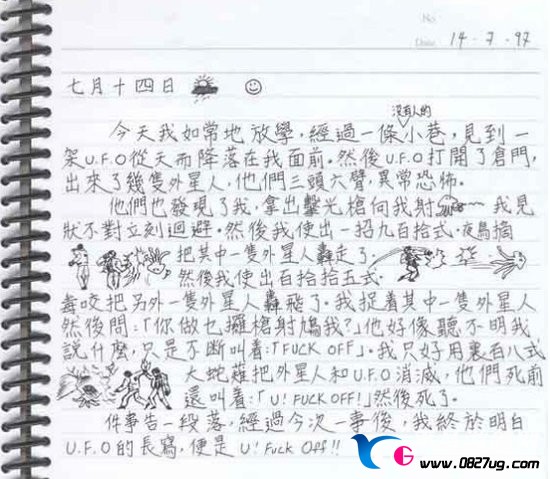 No
Date 14 - 7 - 97
七月十四日
沒有人的
今天我如常地放學,經過一條小巷,見到一
架U.F.O從天而降落在我面前。然後U.F.O打開了倉門,
出來了幾隻外星人,他們三頭六臂,異常恐怖。
他們也發現了我,拿出擊光槍向我射 我見
狀不對立刻迴避。然後我使出一招九百拾式.夜鳥摘
把其中一隻外星人轟走了.
然後我使出百拾拾五式.
每咬把另外一隻外星人轟飛了。我捉着其中一隻外星人
然後問:「你做乜攞槍射鳩我?」他好像聽不明我
說什麼,只是不斷叫着:「FUCK OFF」。我只好用裏百八式
大蛇薙把外星人和U.F.O消滅,他們死前
還叫着:「U! FUCK OFF!」然後死了.
件事告一段落,經過今次一事後,我終於明白
U.F.O的長寫,便是 U! Fuck Off!!
YG www.0827ug.com